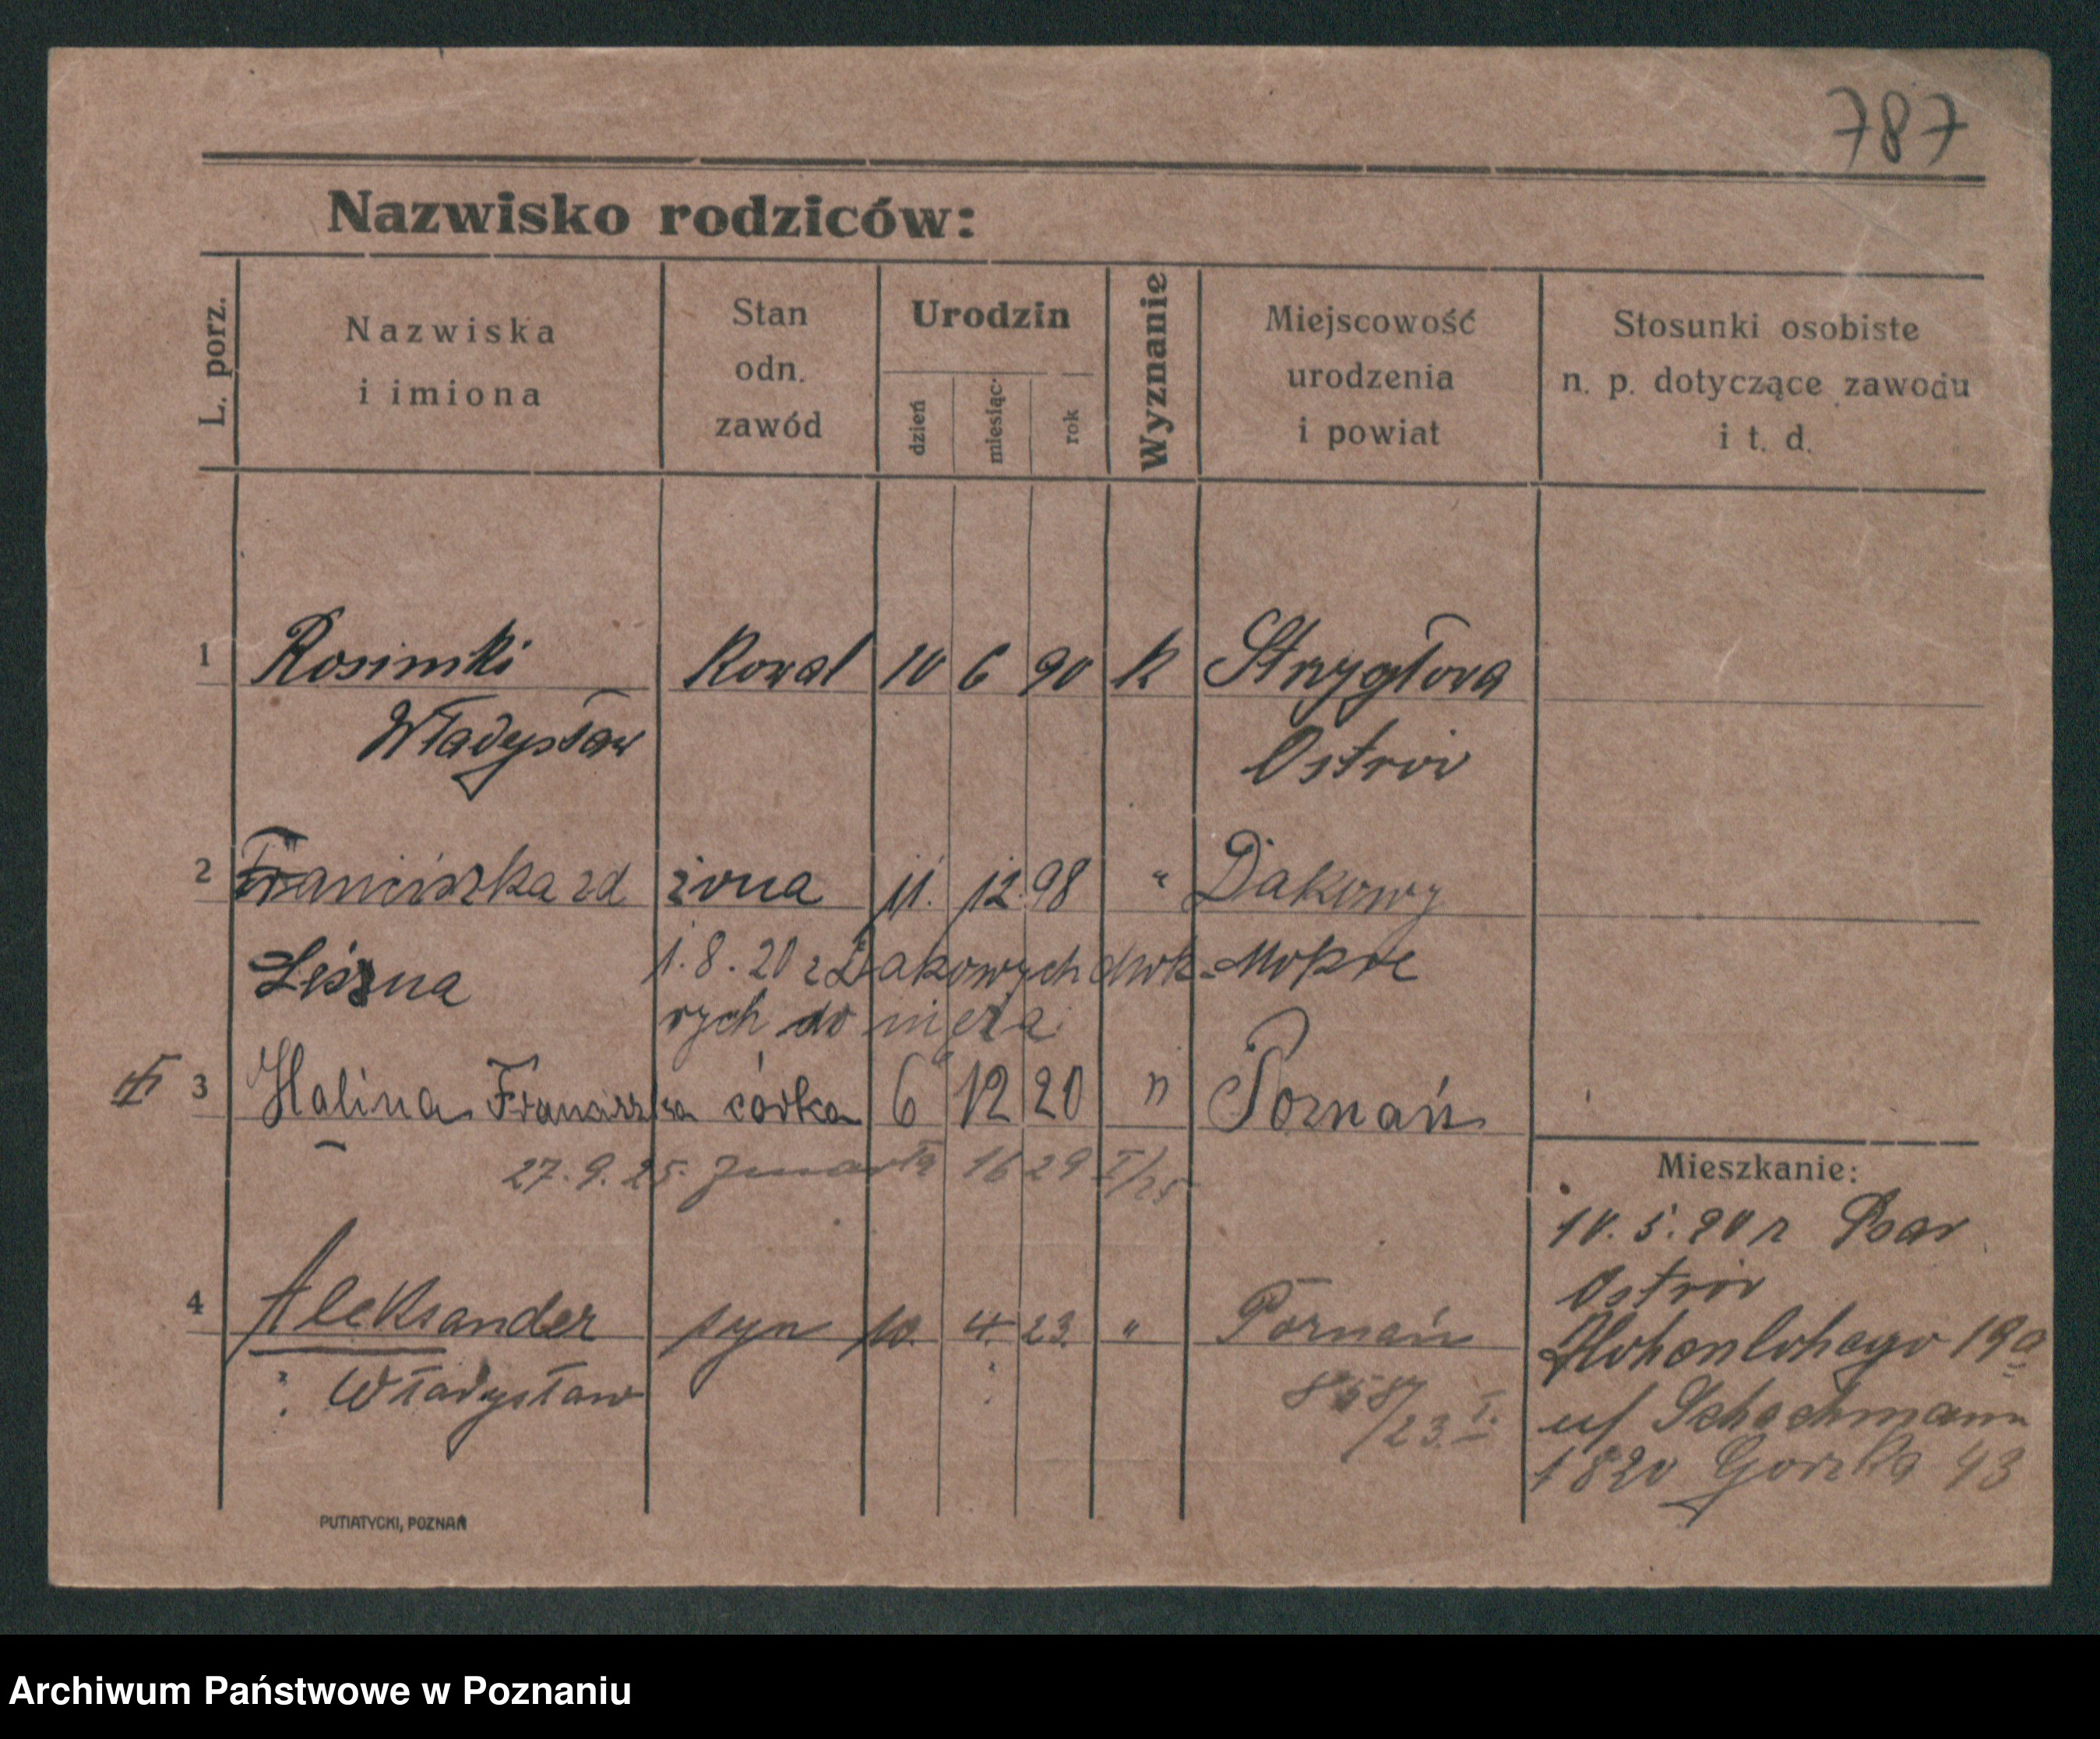 787
Nazwisko rodziców:
L. porz.
Nazwiska
i imiona
Stan
odn.
zawód
Urodzin
dzień
miesiąc
rok
Wyznanie
Miejscowość
urodzenia
i powiat
Stosunki osobiste
n. p. dotyczące zawodu
i t. d.
1 Rosinski Kowal 10 6 90 k Strzygłova
Władysław Ostrów
2 Franciszka zd żona 11. 12. 98 " Dakowy
Liszna 1.8.20 z Dakowych Mok- Mokre
rych do męża
3 Halina Franciszka córka 6 12 20 " Poznań
27.9.25. zmarła 1629 I/25
4 Aleksander syn 10. 4. 23. " Poznań
Władysław 858/23. I.
Mieszkanie:
10.5.20 z
Ostrów
Hohenlohego 19a
u/
1820 Gorzka 43
PUTIATYCKI, POZNAŃ
Archiwum Państwowe w Poznaniu